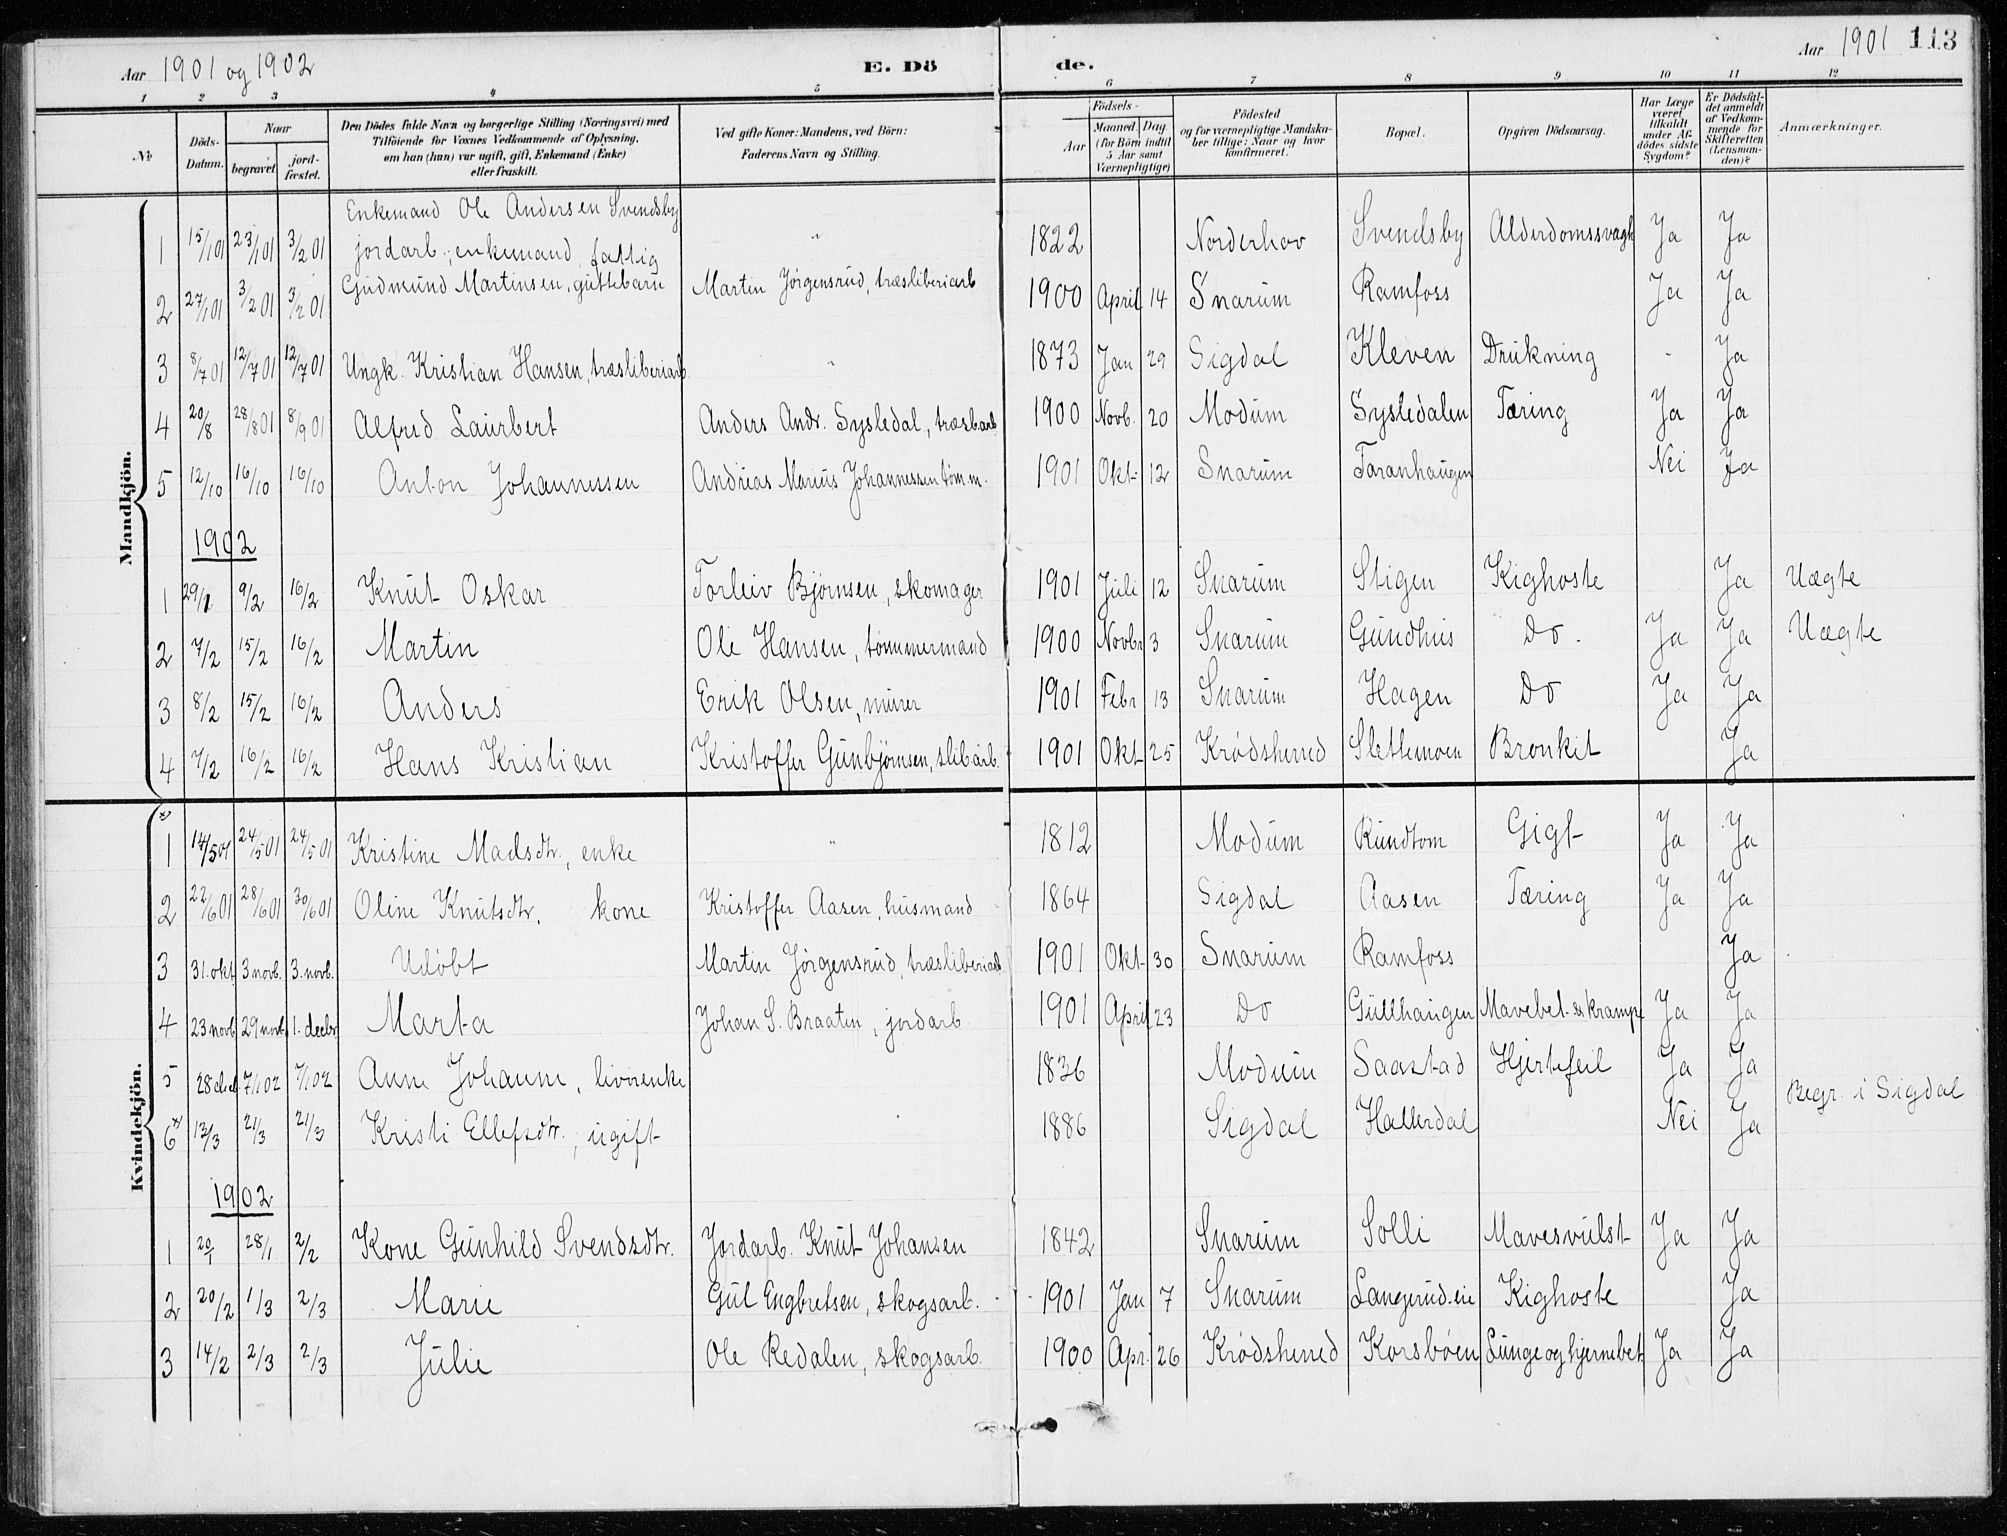 Aar 1901 og 1902 E. Dö de. Aar 1901 113
1 2 3 4 5 6 7 8 9 10 11 12
No
Döds-Datum.
Naar
begravet
jord-fæstet.
Den Dödes fulde Navn og borgerlige Stilling (Næringsvei) med
Tilföiende for Voxnes Vedkommende af Oplysning,
om han (hun) var ugift, gift, Enkemand (Enke)
eller fraskilt.
Ved gifte Koner: Mandens, ved Börn:
Faderens Navn og Stilling.
Födsels-
Aar
Maaned. Dag
(for Börn indtil
5 Aar samt
Værnepligtige)
Födested
og for værnepligtige Mandska-
ber tillige: Naar og hvor
konfirmeret.
Bopæl.
Opgiven Dödsaarsag.
Har Læge
været
tilkaldt
under Af-
dödes sidste
Sygdom?
Er Dödsfal-
det anmeldt
af Vedkom-
mende for
Skifteretten
(Lensman-
den)?
Anmærkninger.
Mandkjön.
Enkemand Ole Andersen Svendsby
1 15/1 01 23/1 01 3/2 01 jordarb., enkemand, fattig " 1822 Norderhov Svendsby Alderdomssvagh Ja Ja
2 27/1 01 3/2 01 3/2 01 Gudmund Martinsen, guttebarn Martin Jørgensrud, træsliberiarb 1900 April 14 Snarum Ramfoss Ja Ja
3 8/7 01 12/7 01 12/7 01 Ungk. Kristian Hansen, træsliberiarb " 1873 Jan 29 Sigdal Kleven Drukning - Ja
4 20/8 28/8 01 8/9 01 Alfred Laurbert Anders Andr. Sysledal, træsb.arb 1900 Novb. 20 Modum Sysledalen Tæring Ja Ja
5 12/10 16/10 16/10 Anton Johannessen Andreas Marius Johannessen tøm.m. 1901 Okt. 12 Snarum Taranhaugen Nei Ja
1902
1 29/1 9/2 16/2 Knut Oskar Torleiv Bjørnsen, skomager 1901 Juli 12 Snarum Stigen Kighoste Ja Uægte
2 7/2 15/2 16/2 Martin Ole Hansen, tømmermand 1900 Novbr 3 Snarum Gundhus Do. Ja Ja Uægte
3 8/2 15/2 16/2 Anders Erik Olsen, murer 1901 Febr 13 Snarum Hagen Do Ja Ja
4 7/2 16/2 16/2 Hans Kristian Kristoffer Gunbjørnsen, slibarb. 1901 Okt 25 Krødsherred Slettemoen Bronkit Ja
Kvindekjön.
1 14/5 01 24/5 01 24/5 01 Kristine Madsdtr., enke " 1812 Modum Rundtom Gigt Ja Ja
2 22/6 01 28/6 01 30/6 01 Oline Knutsdtr. kone Kristoffer Aasen, husmand 1864 Sigdal Aasen Tæring Ja Ja
3 31. okt. 3 novb. 3. novb. Udøbt Martin Jørgensrud, træsliberiarb 1901 Okt. 30 Snarum Ramfoss Ja
4 23 novb. 29 novb. 1. decbr. Marta Johan S. Braaten, jordarb. 1901 April 23 Do Gullhaugen Mavebet. & krampe Ja Ja
5 28 decb. 7/1 02 7/1 02 Anne Johanne, livørenke 1836 Modum Saastad Hjertefeil Ja Ja
6 13/3 21/3 21/3 Kristi Ellefsdtr., ugift 1886 Sigdal Hallerdal Nei Ja Begr. i Sigdal
1902
1 20/1 28/1 2/2 Kone Gunhild Svendsdtr. Jordarb. Knut Johansen 1842 Snarum Solli Mavesvulst Ja Ja
2 20/2 1/3 2/3 Marie Gul Engbretsen, skogsarb. 1901 Jan 7 Snarum Langerud.eie Kighoste Ja
3 14/2 2/3 2/3 Julie Ole Redalen, skogsarb. 1900 Apr. 26 Krødsherred Korsbøen Lunge og hjernebet. Ja Ja